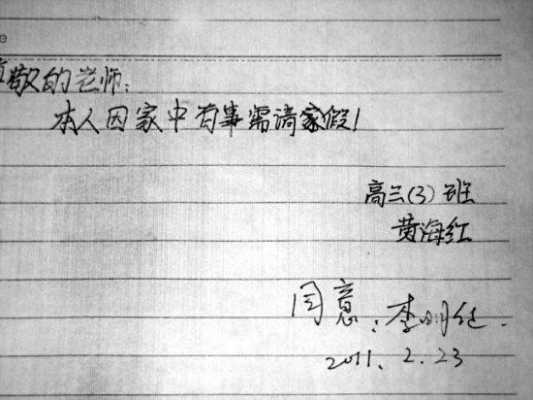 尊敬的老师：
本人因家中有事需请家假！
高三（3）班
黄海红
同意：李明任.
2011. 2. 23